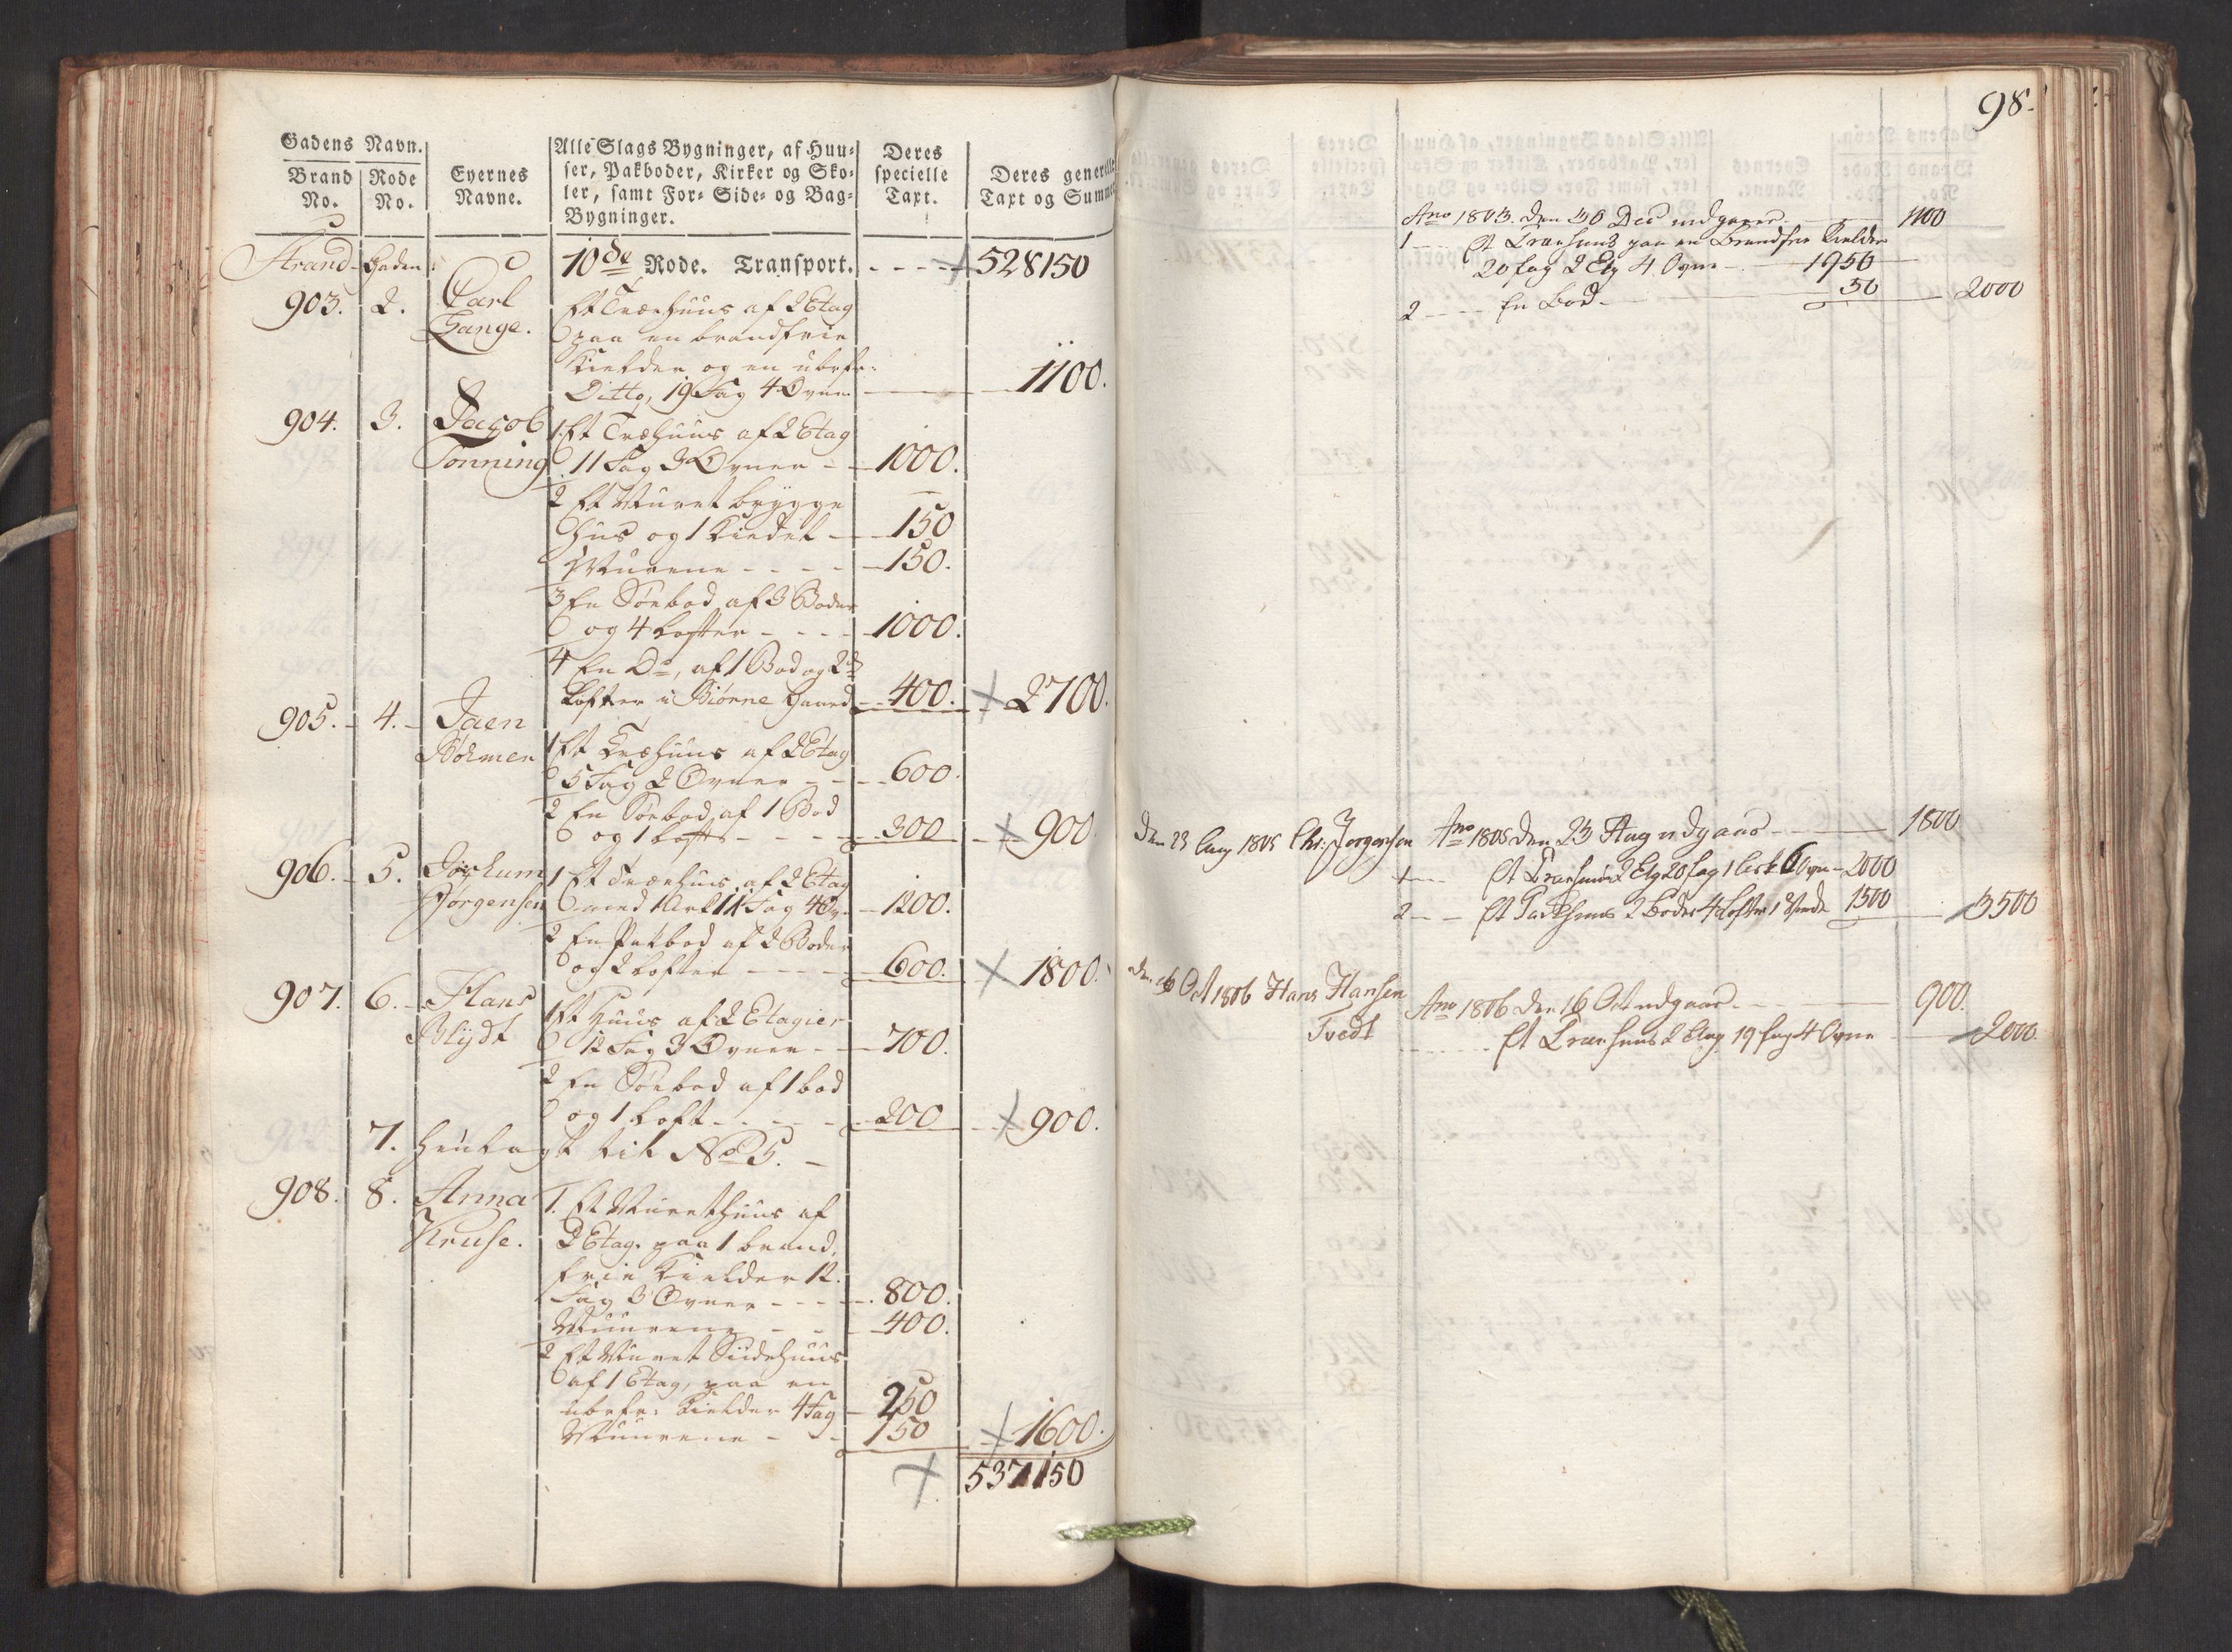 Gadens Navn.
Brand No.
Rode No.
Eyernes Navne.
Alle Slags Bygninger, af Huu-
ser, Pakboder, Kirker og Sko-
ler, samt For- Side- og Bag-
Bygninger.
Deres specielle Taxt.
Deres generelle
Taxt og Summe
Strand-Gaden: 10de Rode. Transport. 528150
903. 2. Carl Et Træehuus af 2 Etag
Gange. paa en brandfrie
Kielder og en ubrfr:
Ditto, 19 Fag 4 Ovne 1100.
904. 3. Jacob 1. Et Træhuus af 2 Etag
Tonning 11 Fag 3 Ovner 1000.
2 Et Muret brygge
huus og 1 Kiedel 150
Murene 150.
3 En Søebod af 3 Boder
og 4 Lofter 1000.
4 En Do, af 1 Bod og 2de
Lofter i Biørne Gaard 400. 2700.
905. 4. Jaen
1 Et Træhuus af 2 Etag
5 Fag 2 Ovner 600.
2 En Søebod af 1 Bod
og 1 Loft 300 900
906. 5. Jochum 1 Et Træehuus af 2 Etag
Jørgensen med 1 Ark 11 Fag 4 Ov. 1200.
2 En Pakbod af 2 Boder
og 2 Lofter 600. 1800.
907. 6. Hans 1 Et Huus af 2 Etagier
Blydt 12 Fag 3 Ovner 700.
2 En Søebod af 1 bod
og 1 Loft 200 900.
7. henlagt til No 5.
908. 8. Anna 1. Et Muret huus af
Kruse. 2 Etag. paa 1 brand-
frie Kielder 12.
Fag 3 Ovner 800.
Muurene 400.
2 Et Muret Siidehuus
af 1 Etag, paa en
ubrfr: Kielder 4 Fag 250
Muurene 150 1600.
537150
98.
Ano 1803. den 30 Dec udgaaer 1100
1 Et Træehuus paa en Brandfrie Kielder
20 fag 2 Etg 4 Ovne 1950
2 En Bod 50 2000
den 23 Aug 1805 Chr: Jørgensen Ano 1805 den 23 Aug udgaar 1800
1 Et Træehuus 2 Etg 20 fag 1 Ark 6 Ovne 2000
2 Et Packhuus 2 Boder 4 Lofter 1 Vinde 1500 3500
den 16 Oct 1806 Hans Hansen Ano 1806 den 16 Oct udgaar 900.
Tvedt Et Træehuus 2 Etag 19 fag 4 Ovne 2000.